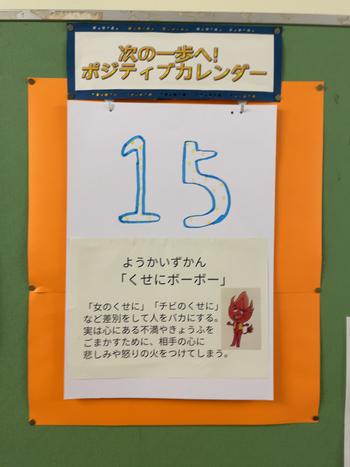 次の一歩へ!
ポジティブカレンダー
15
ようかいずかん
「くせにボーボー」
「女のくせに」「チビのくせに」
など差別をして人をバカにする。
実は心にある不満やきょうふを
ごまかすために、相手の心に
悲しみや怒りの火をつけてしまう。